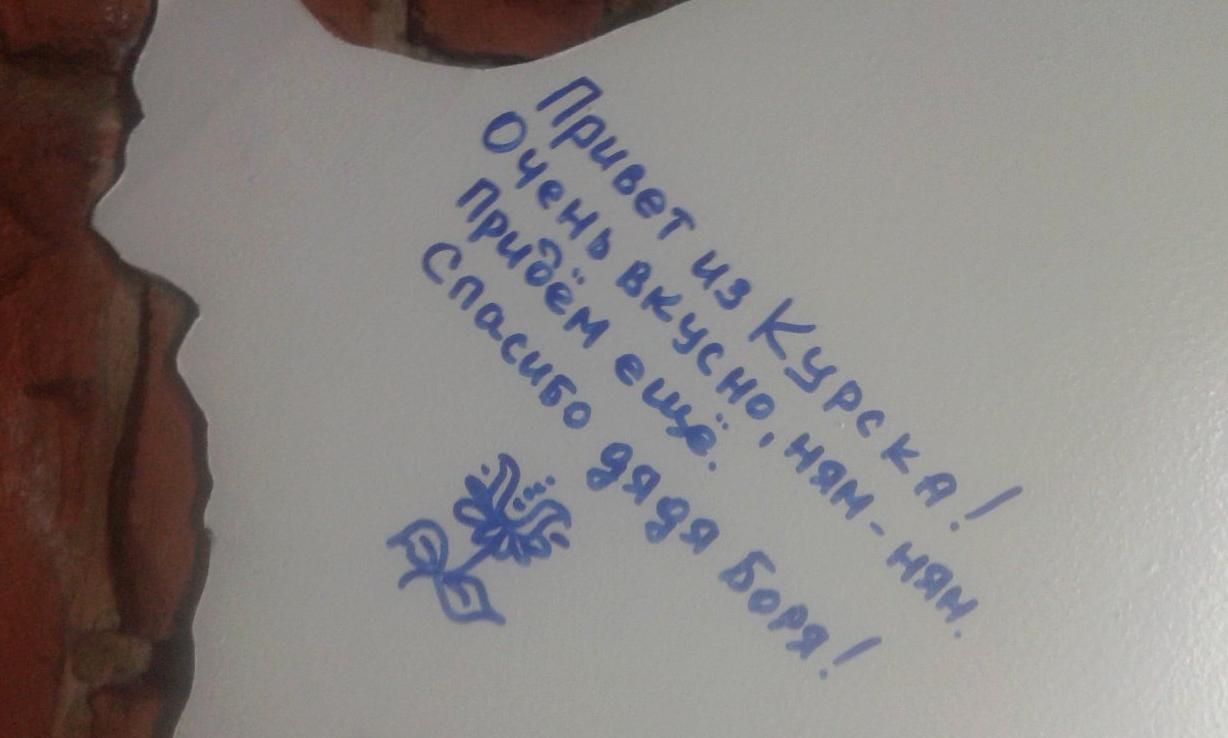 Привет из Курска!
Очень вкусно, ням-ням.
Придём ещё.
Спасибо дядя Боря!